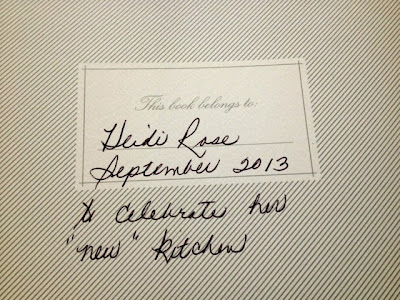 This book belongs to:
Heidi Rose
September 2013
to celebrate her
"new" kitchen